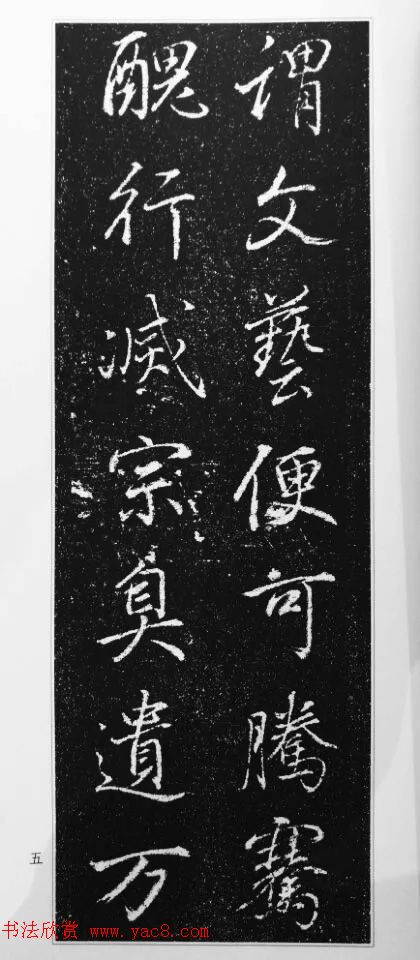 谓文藝便可騰騫
醜行滅宗臭遺万
五
书法欣赏 www.yac8.com